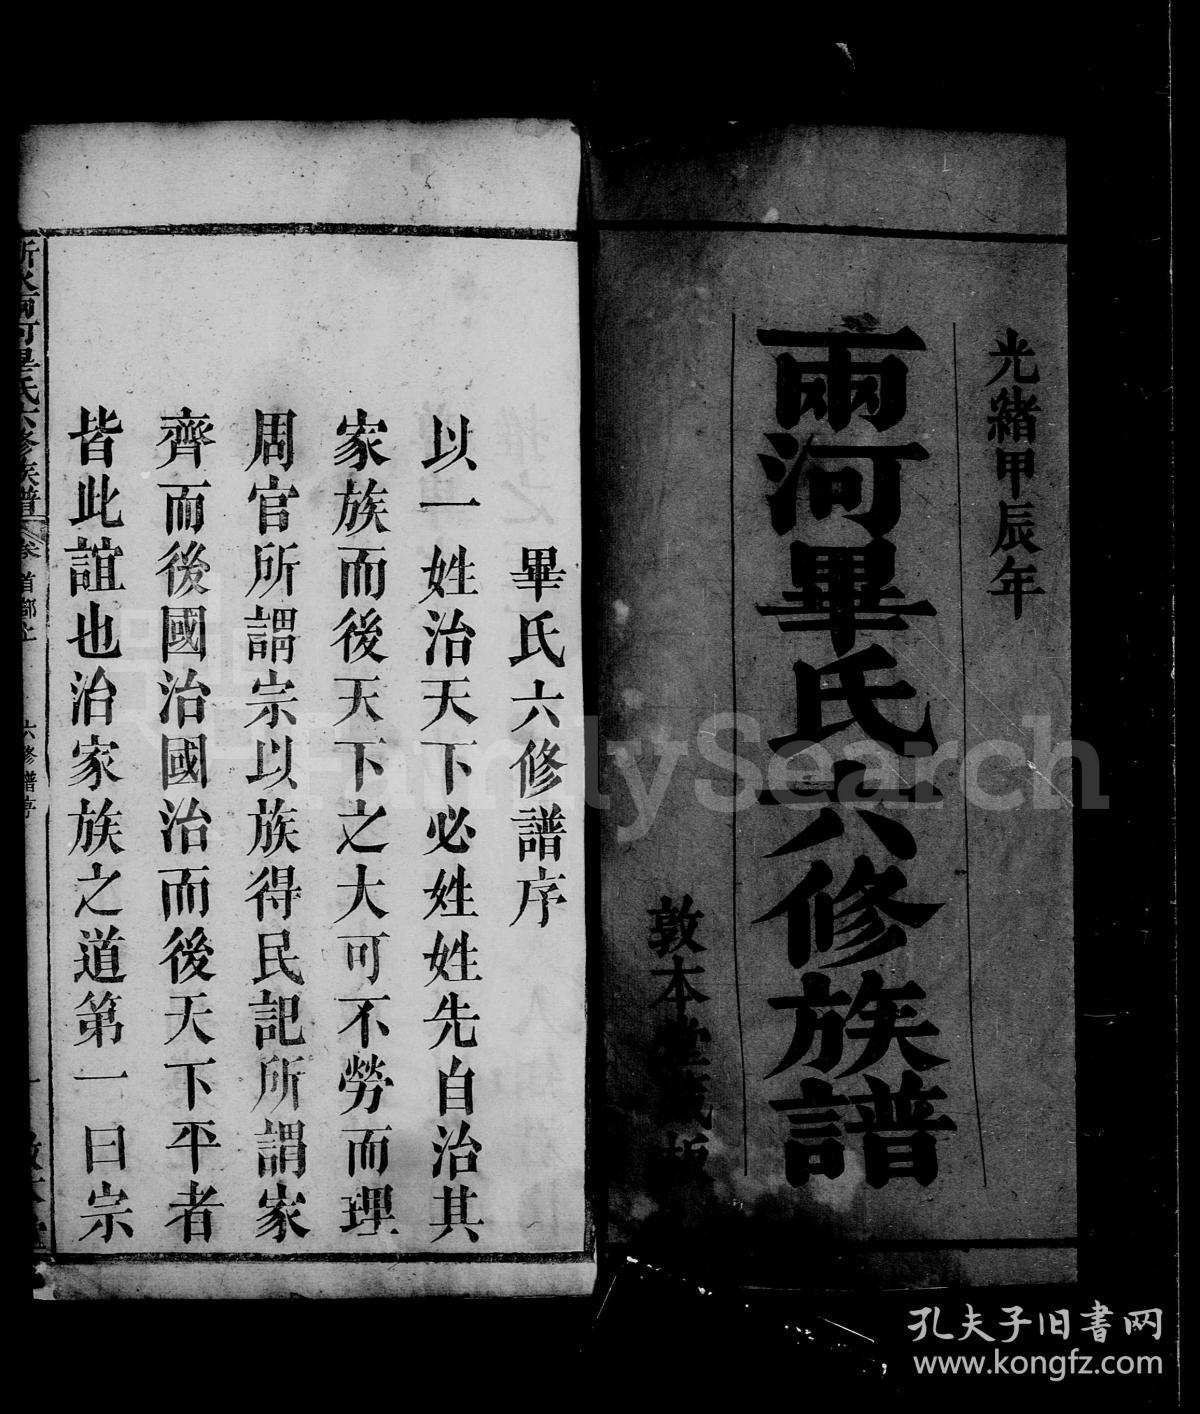 光緒甲辰年
兩河畢氏六修族譜
敦本堂藏板
畢氏六修譜序
以一姓治天下必姓姓先自治其
家族而後天下之大可不勞而理
周官所謂宗以族得民記所謂家
齊而後國治國治而後天下平者
皆此誼也治家族之道第一曰宗
水兩河畢氏六修族譜 卷首 六修譜序 一
FamilySearch
孔夫子旧書网
www.kongfz.com